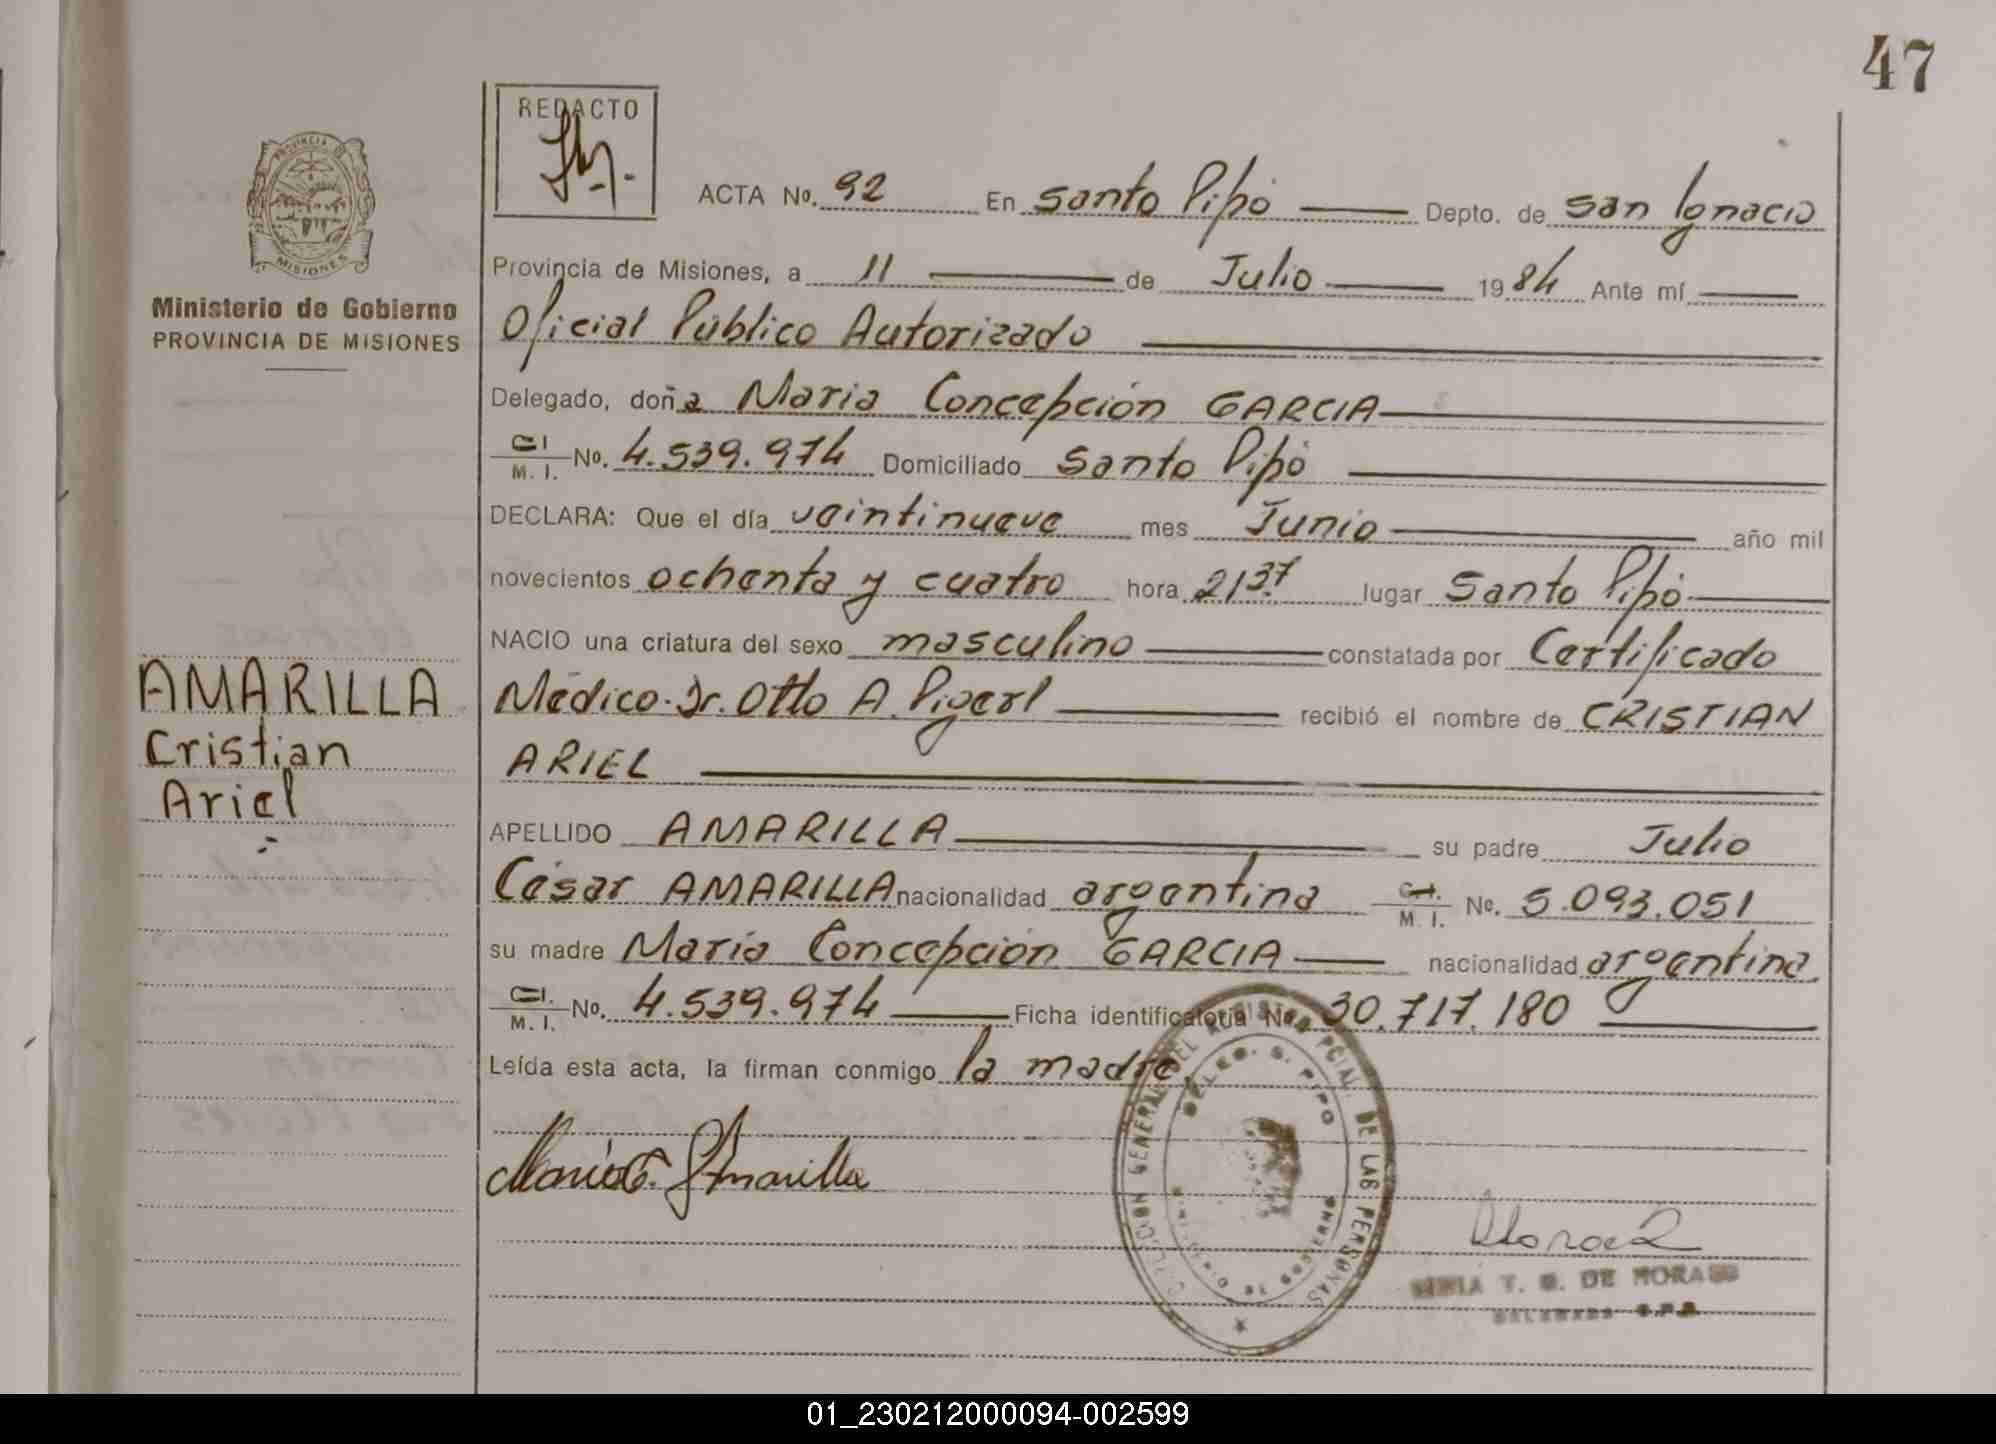 47
REDACTO
ACTA No. 92 En Santo Pipó Depto. de San Ignacio
PROVINCIA DE
MISIONES
Provincia de Misiones, a 11 de Julio 1984 Ante mí
Ministerio de Gobierno
PROVINCIA DE MISIONES
Oficial Público Autorizado
Delegado, doña Maria Concepción GARCIA
C.I. M. I. No. 4.539.974 Domiciliado Santo Pipó
DECLARA: Que el día veintinueve mes Junio año mil
novecientos ochenta y cuatro hora 21,37 lugar Santo Pipó
NACIO una criatura del sexo masculino constatada por Certificado
AMARILLA
Cristian
Ariel
Médico. Dr. Otto A. recibió el nombre de CRISTIAN
ARIEL
APELLIDO AMARILLA su padre Julio
César AMARILLA nacionalidad argentina C.I. M. I. No. 5.093.051
su madre María Concepción GARCIA nacionalidad argentina
C.I. M. I. No. 4.539.974 Ficha identificatoria No. 30.717.180
Leída esta acta, la firman conmigo la madre.
Maria C. G. Amarilla
DIRECCION GENERAL DEL REGISTRO PCIAL. DE LAS PERSONAS
DELEG. S. PIPO
MINISTERIO DE GOBIERNO
T. G. DE MORA
01_230212000094-002599